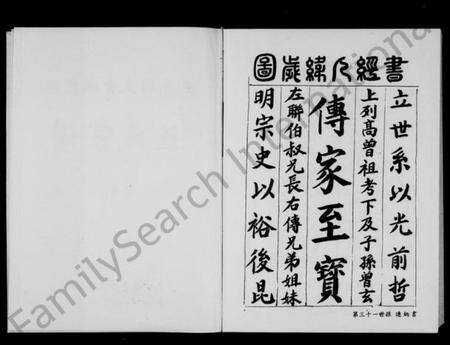 書經人緯歲圖
立世系以光前哲
上列高曾祖考下及子孫曾玄
傳家至寶
左聯伯叔兄長右傳兄弟姐妹
明宗史以裕後昆
第三十一世孫 邁炳書
FamilySearch International